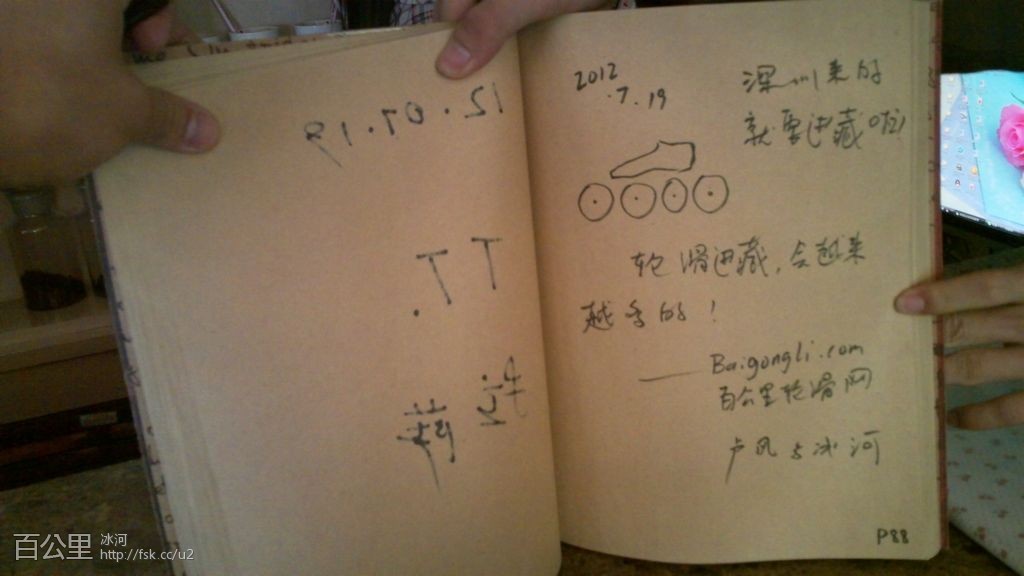 12.07.19
T T.
2012
.7.19
深圳来的
就要进藏啦!
轮滑进藏,会越来
越多的!
——Baigongli.com
百公里轮滑网
卢风与冰河
P88
百公里
冰河
http://fsk.cc/u2